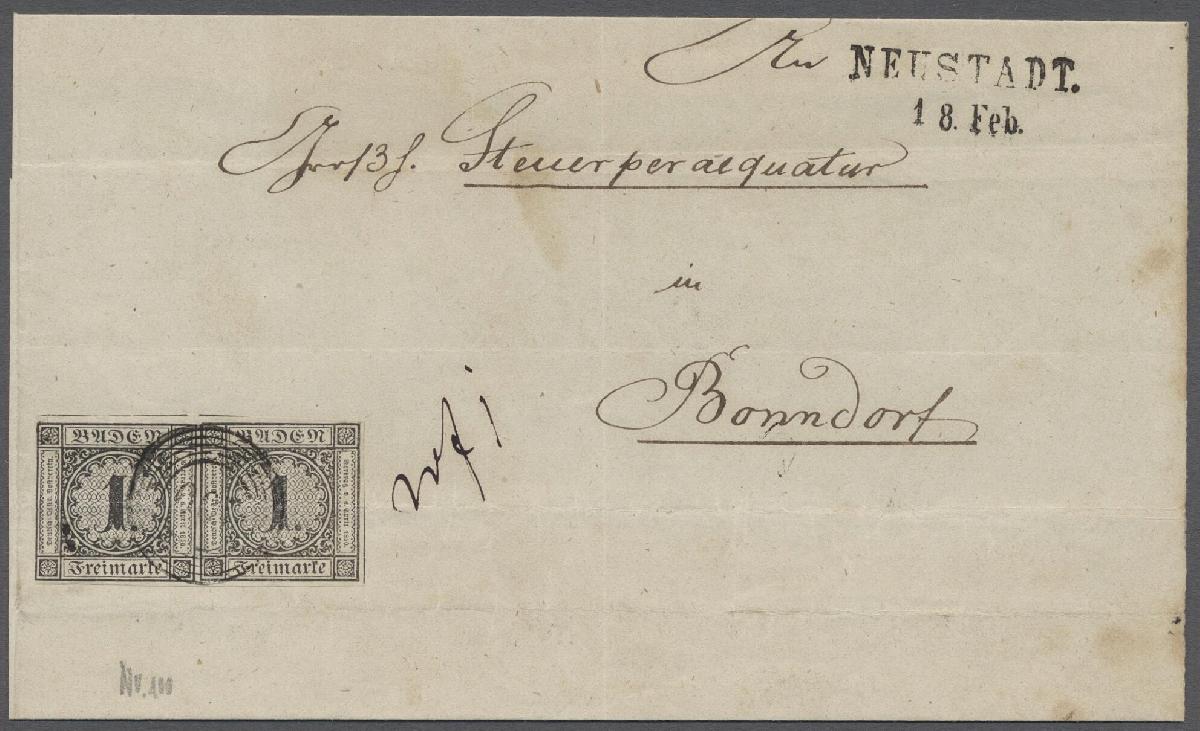 An
NEUSTADT.
18. Feb.
Großh. Steuerperaequatur
in
Bonndorf
BADEN BADEN
1. 1.
Freimarke Freimarke